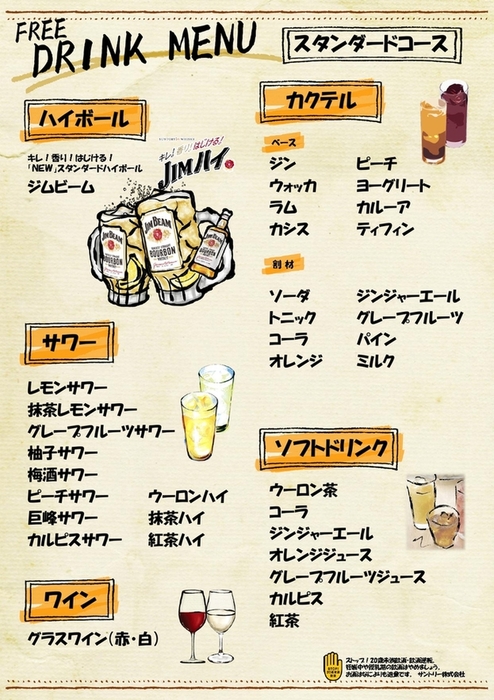 FREE
DRINK MENU
スタンダードコース
ハイボール
キレ！香り！はじける！
「NEW」スタンダードハイボール
ジムビーム
キレ！香り！はじける！
JIMハイ。
JIM BEAM
BOURBON
JIM BEAM
BOURBON
サワー
レモンサワー
抹茶レモンサワー
グレープフルーツサワー
柚子サワー
梅酒サワー
ピーチサワー ウーロンハイ
巨峰サワー 抹茶ハイ
カルピスサワー 紅茶ハイ
ワイン
グラスワイン（赤・白）
カクテル
ベース
ジン ピーチ
ウォッカ ヨーグリート
ラム カルーア
カシス ティフィン
割材
ソーダ ジンジャーエール
トニック グレープフルーツ
コーラ パイン
オレンジ ミルク
ソフトドリンク
ウーロン茶
コーラ
ジンジャーエール
オレンジジュース
グレープフルーツジュース
カルピス
紅茶
ストップ！20歳未満飲酒・飲酒運転。
妊娠中や授乳期の飲酒はやめましょう。
お酒はなによりも適量です。 サントリー株式会社